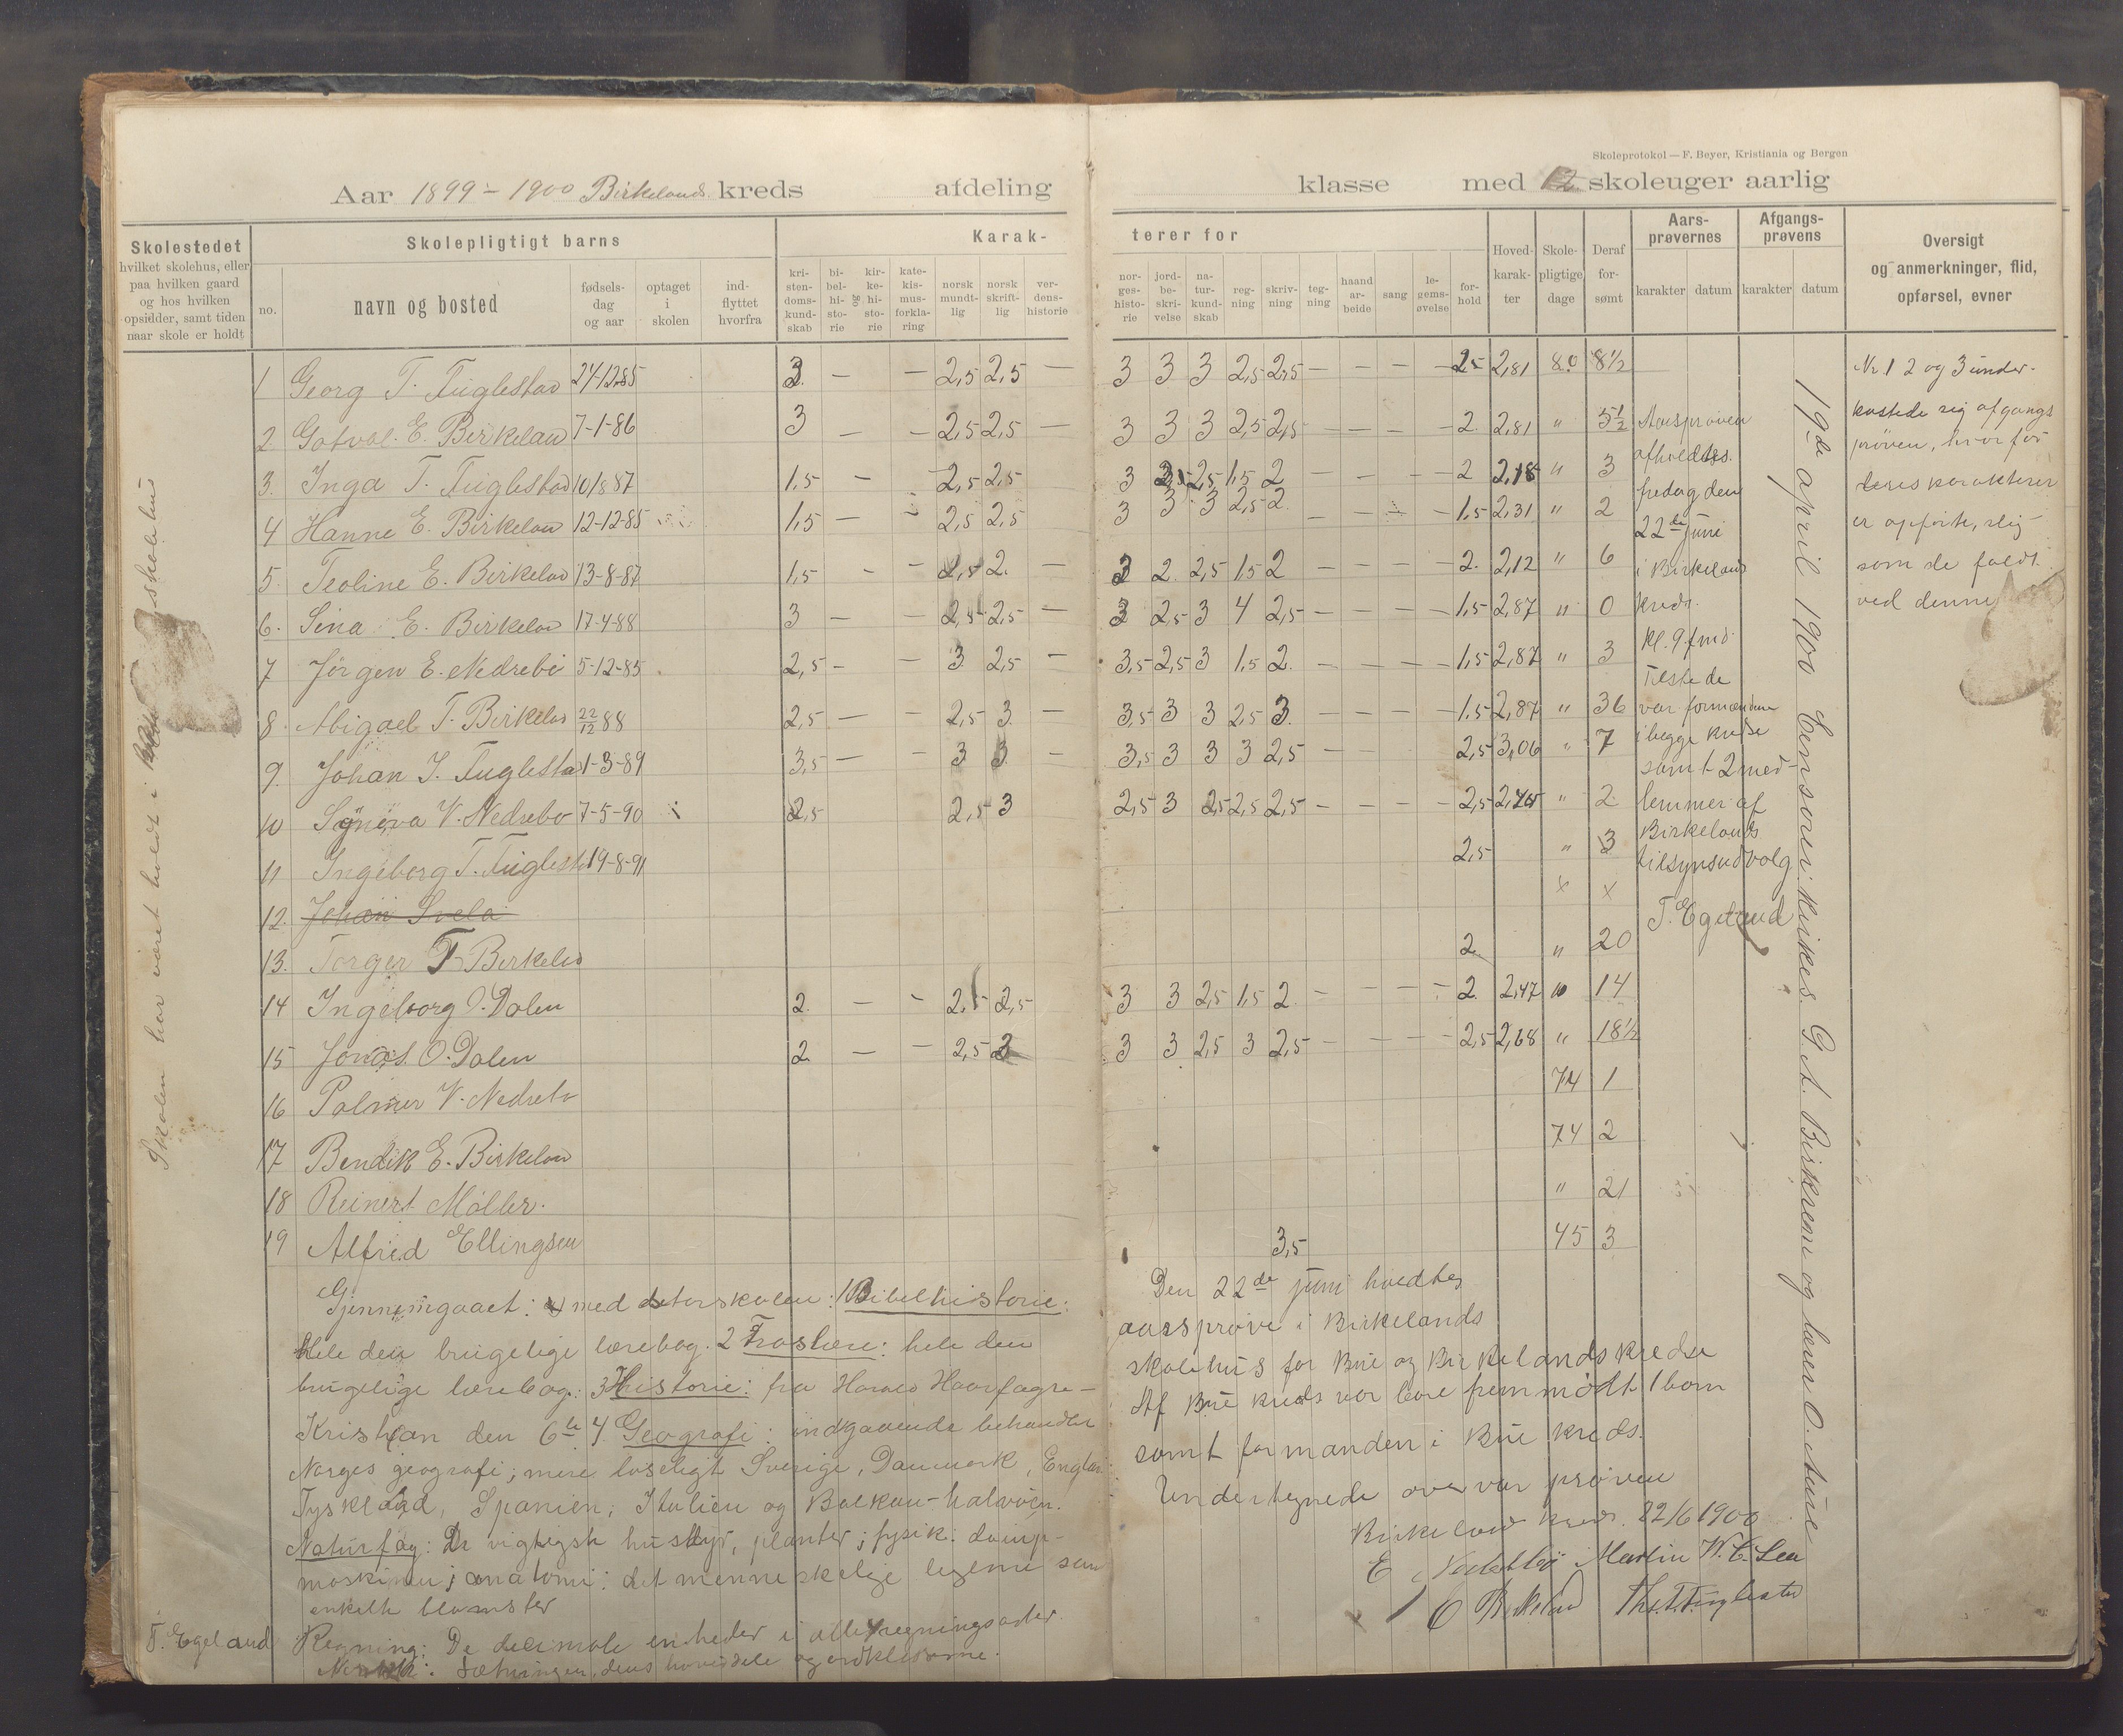 Skoleprotokol — F. Beyer, Kristiania og Bergen
Aar 1899 – 1900 Birkelands kreds afdeling klasse med 12 skoleuger aarlig
Skolestedet
hvilket skolehus, eller
paa hvilken gaard
og hos hvilken
opsidder, samt tiden
naar skole er holdt
Skolepligtigt barns
no.
navn og bosted
fødsels-
dag
og aar
optaget
i
skolen
ind-
flyttet
hvorfra
Karak-
terer for
kri-
sten-
doms-
kund-
skab
bi-
bel-
hi-
sto-
rie
og
kir-
ke-
hi-
sto-
rie
kate-
kis-
mus-
forkla-
ring
norsk
mundt-
lig
norsk
skrift-
lig
ver-
dens-
historie
nor-
ges-
histo-
rie
jord-
be-
skri-
velse
na-
tur-
kund-
skab
reg-
ning
skriv-
ning
teg-
ning
haand
ar-
beide
sang
le-
gems-
øvelse
for-
hold
Hoved-
karak-
ter
Skole-
pligtige
dage
Deraf
for-
sømt
Aars-
prøvernes
karakter datum
Afgangs-
prøvens
karakter datum
Oversigt
og anmerkninger, flid,
opførsel, evner
Skolen har været holdt i skolehus
1 Georg T. Fuglestad 24-12-85 3 — — 2,5 2,5 — 3 3 3 2,5 2,5 — — — — 2,5 2,81 80 8½
2 Gotval. E. Birkeland 7-1-86 3 — — 2,5 2,5 — 3 3 3 2,5 2,5 — — — — 2 2,81 " 5½
3. Inga T. Fuglestad 10/8 87 1,5 — — 2,5 2,5 3 2,5 1,5 2 — — — — 2 2,18 " 3
4 Hanne E. Birkeland 12-12-85 1,5 — 2,5 2,5 3 3 3 2,5 2 — — — — 1,5 2,31 " 2
5. Teoline E. Birkeland 13-8-87 1,5 - - 2,5 2. — 3 2. 2,5 1,5 2 — — — — 2. 2,12 " 6
6. Sina E. Birkeland 17-4-88 3 — — 2,5 2,5 — 3 2,5 3 4 2,5 — — — — 1,5 2,87 " 0
7 Jørgen E. Nedrebø 5-12-85 2,5 — — 3 2,5 — 3,5 2,5 3 1,5 2. — — — — 1,5 2,87 " 3
8. Abigael T. Birkeland 22/12 88 2,5 — — 2,5 3. — 3,5 3 3 2,5 3. — — — — 1,5 2,87 " 36
9. Johan T. Fuglestad 1-3-89 3,5 — — 3 3 — 3,5 3 3 3 2,5 — — 2,5 3,06 " 7
10 Synøva V. Nedrebø 7-5-90 2,5 2,5 3 2,5 3 2,5 2,5 2,5 — — — — 2,5 " 2
11 Ingeborg T. Fuglestad 19-8-91 2,5 " 3
12. Johan Svela x x
13. Torger T. Birkeland 2 " 20
14 Ingeborg O. Dalen 2. — - 2,5 2,5 3 3 2,5 1,5 2. — — — — 2. 2,47 " 14
15 Jonas O. Dalen 2 — - 2,5 3 3 3 2,5 3 2,5 — — — — 2,5 2,68 " 18½
16 Palmer V. Nedrebø 74 1
17 Bendik E. Birkeland 74 2
18 Reinert Møller. " 21
19 Alfred Ellingsen 3,5 45 3
Aarsprøven
afholdtes
fredag den
22de juni
i Birkelands
kreds.
Kl. 9 fmd
Tilstede
var formændene
i begge kredse
samt 2 med-
lemmer af
Birkelands
tilsynsudvalg
T. Egeland
19de april 1900 Censorer: kirkes. G. A. Birkrem og lærer O. Aure
Nr 1 2 og 3 under-
kastede sig afgangs
prøven, hvorfor
deres karakterer
er opførte, slig
som de faldt
ved denne
Gjennemgaaet: med storskolen: 1 Bibelhistorie:
Hele den brugelige lærebog. 2 Troslære: hele den
brugelige lærebog: 3 Historie: fra Harald Haarfagre —
Kristian den 6te 4. Geografi: indgaaende behandlet
Norges geografi; mere løseligt Sverige, Danmark, England
Tyskland, Spanien, Italien og Balkan-halvøen.
Naturfag: De vigtigste husdyr, planter; fysik: damp-
maskinen; anatomi: det menneskelige legeme samt
enkelte blomster
Regning: De decimale enheder i alle regningsarter
Norsk: Sætningen, dens hoveddele og ordklasserne.
T. Egeland
Den 22de juni holdtes
aarsprøve i Birkelands
skolehus for Bue og Birkelands kredse
Af Bue kreds var bare fremmødt 1 barn
samt formanden i Bue kreds.
Undertegnede overvar prøven
Birkeland kreds. 22/6 1900
E Nedrebø Martin W. E. Lea
E Birkeland Ths. T. Fuglestad